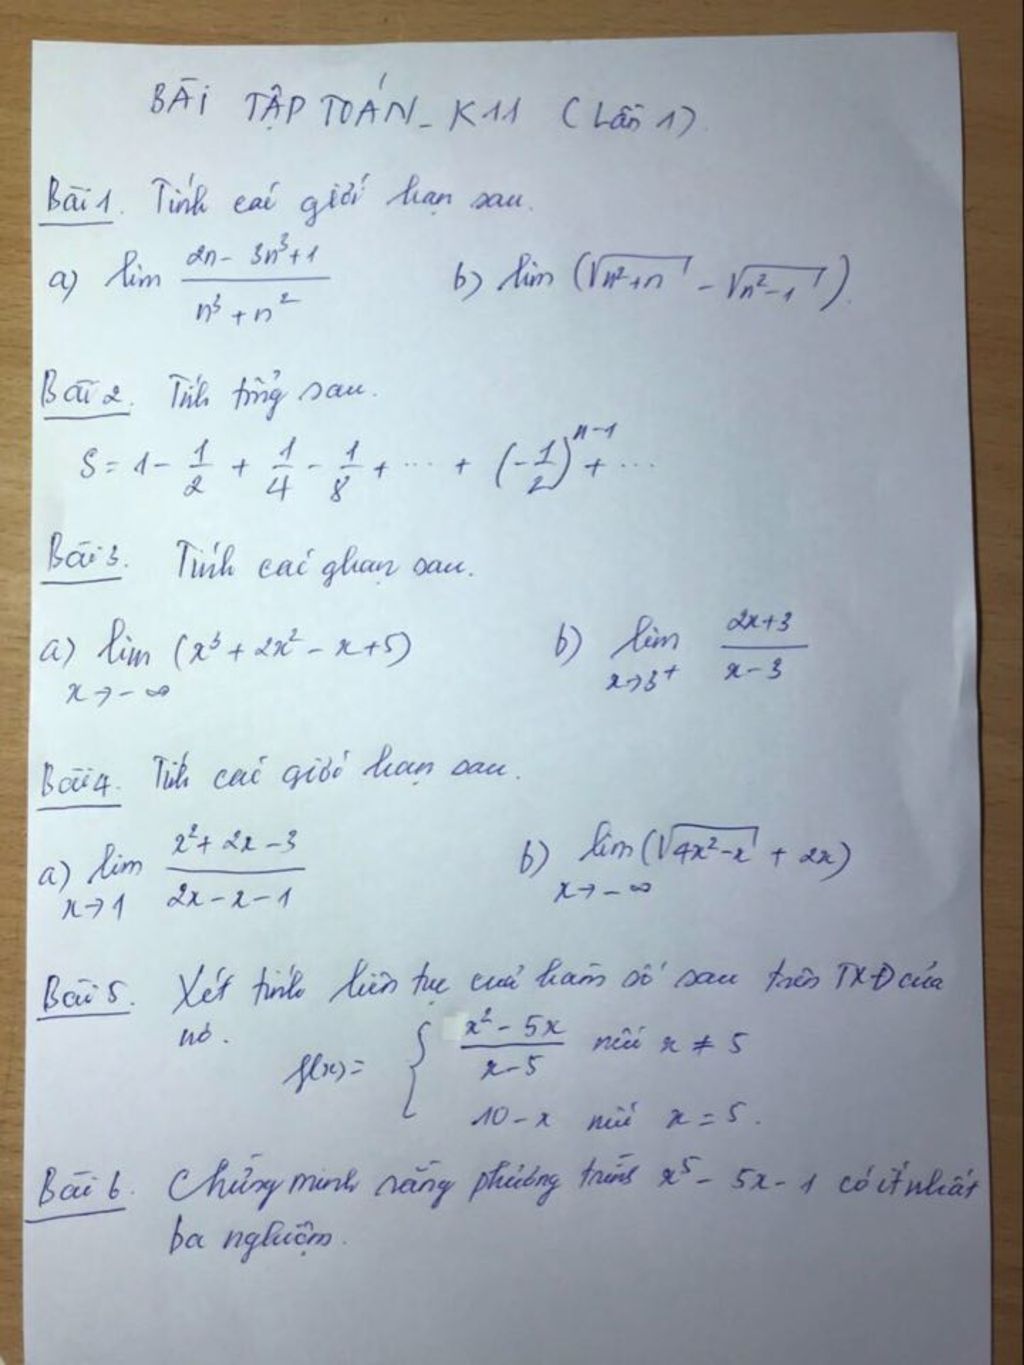 BÀI TẬP TOÁN - K11 (Lần 1)
Bài 1. Tính các giới hạn sau.
a) lim (2n - 3n³ + 1)/(n³ + n²) b) lim (√(n² + n) - √(n² - 1)).
Bài 2. Tính tổng sau.
S = 1 - 1/2 + 1/4 - 1/8 + ... + (-1/2)ⁿ⁻¹ + ...
Bài 3. Tính các ghạn sau.
a) lim x→-∞ (x³ + 2x² - x + 5) b) lim x→3⁺ (2x+3)/(x-3)
Bài 4. Tính các giới hạn sau.
a) lim x→1 (x² + 2x - 3)/(2x - x - 1) b) lim x→-∞ (√(4x² - x) + 2x)
Bài 5. Xét tính liên tục của hàm số sau trên TXĐ của
nó.
f(x) = { (x² - 5x)/(x - 5) nếu x ≠ 5
10 - x nếu x = 5.
Bài 6. Chứng minh rằng phương trình x⁵ - 5x - 1 có ít nhất
ba nghiệm.